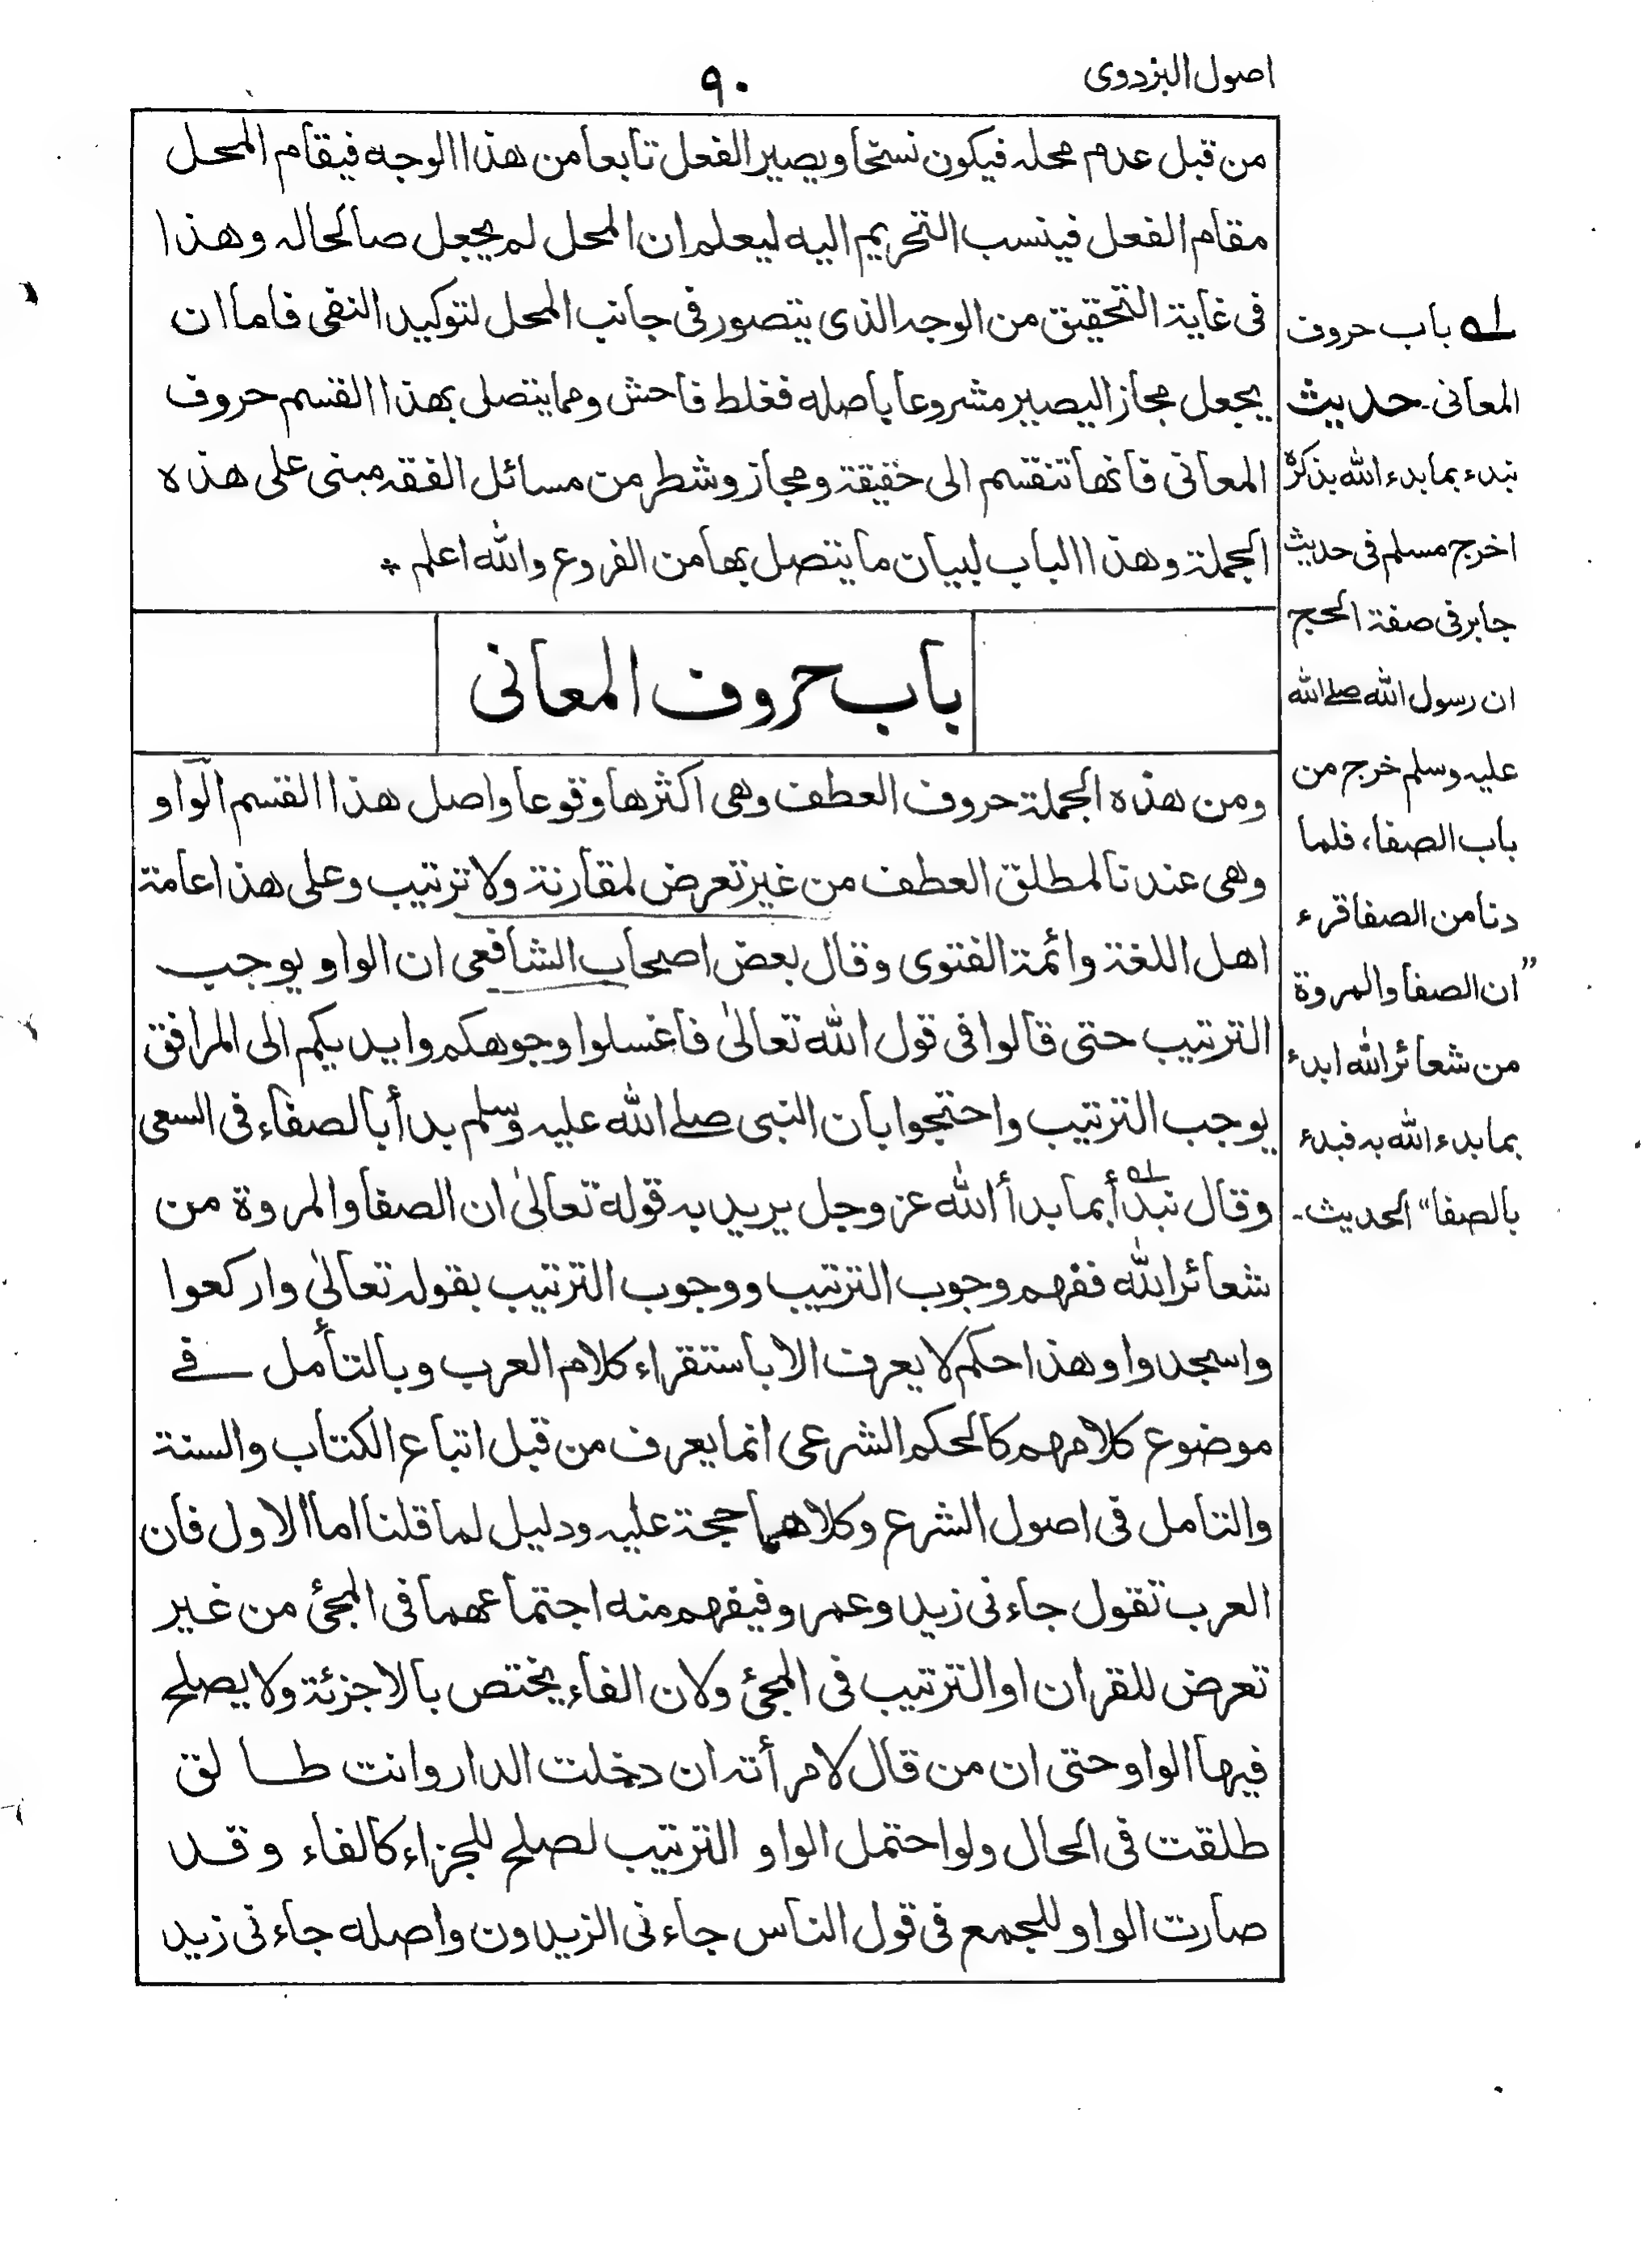 اصول البزدوی
۹۰
من قبل عدم محله فيكون نسخا ويصير الفعل تابعا من هذا الوجه فيقام المحل
مقام الفعل فينسب التحريم اليه ليعلم ان المحل لم يجعل صالحا له وهذا
فى غاية التحقيق من الوجه الذى يتصور فى جانب المحل لتوكيد النفى فاما ان
يجعل مجازا ليصير مشروعا باصله فغلط فاحش ومما يتصل بهذا القسم حروف
المعانى فانها تنقسم الى حقيقة ومجاز وشطر من مسائل الفقه مبنى على هذه
الجملة وهذا الباب لبيان ما يتصل بها من الفروع والله اعلم *
باب حروف المعانى
ومن هذه الجملة حروف العطف وهى اكثرها وقوعا واصل هذا القسم الواو
وهى عندنا لمطلق العطف من غير تعرض لمقارنة ولا ترتيب وعلى هذا عامة
اهل اللغة وائمة الفتوى وقال بعض اصحاب الشافعى ان الواو يوجب
الترتيب حتى قالوا فى قول الله تعالىٰ فاغسلوا وجوهكم وايديكم الى المرافق
يوجب الترتيب واحتجوا بان النبى صلے الله عليه وسلم بدأ بالصفاء فى السعى
وقال نبدأ بما بدأ الله عز وجل يريد به قوله تعالىٰ ان الصفا والمروة من
شعائر الله ففهم وجوب الترتيب ووجوب الترتيب بقوله تعالىٰ واركعوا
واسجدوا وهذا حكم لا يعرف الا باستقراء كلام العرب وبالتأمل فے
موضوع كلامهم كالحكم الشرعى انما يعرف من قبل اتباع الكتاب والسنة
والتامل فى اصول الشرع وكلاهما حجة عليه ودليل لما قلنا اما الاول فان
العرب تقول جاءنى زيد وعمر وفيفهم منه اجتماعهما فى المجئ من غير
تعرض للقران او الترتيب فى المجئ ولان الفاء يختص بالاجزئة ولا يصلح
فيها الواو حتى ان من قال لامرأته ان دخلت الدار وانت طالق
طلقت فى الحال ولو احتمل الواو الترتيب لصلح للجزاء كالفاء وقد
صارت الواو للجمع فى قول الناس جاءنى الزيدون واصله جاءنى زيد
لـه باب حروف
المعانى۔ حديث
نبدء بما بدء الله بذكره
اخرج مسلم فى حديث
جابر فى صفة الحج
ان رسول الله صلے الله
عليه وسلم خرج من
باب الصفا، فلما
دنا من الصفا قرء
”ان الصفا والمروة
من شعائر الله ابدء
بما بدء الله به فبدء
بالصفا“ الحديث۔